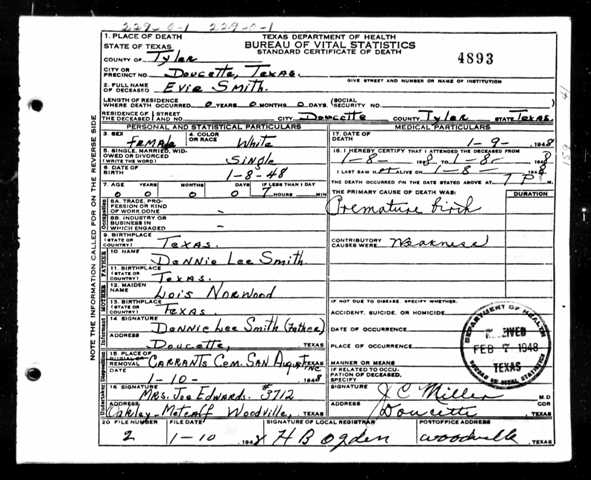 229-0-1 229-0-1
1. PLACE OF DEATH TEXAS DEPARTMENT OF HEALTH
STATE OF TEXAS BUREAU OF VITAL STATISTICS
COUNTY OF Tyler STANDARD CERTIFICATE OF DEATH 4893
CITY OR PRECINCT NO. Doucette, Texas. GIVE STREET AND NUMBER OR NAME OF INSTITUTION
2. FULL NAME OF DECEASED Evie Smith.
LENGTH OF RESIDENCE WHERE DEATH OCCURRED 0 YEARS 0 MONTHS 0 DAYS (SOCIAL SECURITY NO.
RESIDENCE OF THE DECEASED STREET AND NO. CITY Doucette COUNTY Tyler STATE Texas.
PERSONAL AND STATISTICAL PARTICULARS MEDICAL PARTICULARS
3. SEX Female 4. COLOR OR RACE White
17. DATE OF DEATH 1-9- 1948
5. SINGLE, MARRIED, WIDOWED OR DIVORCED (WRITE THE WORD) Single
18. I HEREBY CERTIFY THAT I ATTENDED THE DECEASED FROM
1-8- 1948 1-8- 1948
6. DATE OF BIRTH 1-8-48
I LAST SAW H ALIVE ON 1-8- 1948
7. AGE YEARS MONTHS DAYS IF LESS THAN 1 DAY
0 0 0 7 HOURS MIN
THE DEATH OCCURRED ON THE DATE STATED ABOVE AT 7 P M
THE PRIMARY CAUSE OF DEATH WAS: DURATION
8A. TRADE, PROFESSION OR KIND OF WORK DONE -
Premature birth
8B. INDUSTRY OR BUSINESS IN WHICH ENGAGED -
9. BIRTHPLACE (STATE OR COUNTRY) Texas.
CONTRIBUTORY CAUSES WERE Weakness
10. NAME Dennie Lee Smith
11. BIRTHPLACE (STATE OR COUNTRY) Texas.
12. MAIDEN NAME Lois Norwood
13. BIRTHPLACE (STATE OR COUNTRY) Texas.
IF NOT DUE TO DISEASE, SPECIFY WHETHER:
ACCIDENT, SUICIDE, OR HOMICIDE
14. SIGNATURE Dennie Lee Smith (Father)
DATE OF OCCURRENCE
ADDRESS Doucette, TEXAS
PLACE OF OCCURRENCE
15. PLACE OF BURIAL OR REMOVAL Garrants Cem. San Augustine TEXAS
MANNER OR MEANS
DATE 1-10- 1948
IF RELATED TO OCCUPATION OF DECEASED, SPECIFY
16. SIGNATURE Mrs. Joe Edward. #3712
SIGNATURE J C Miller M D
ADDRESS Oakley-Metcalf Woodville, TEXAS
ADDRESS Doucette TEXAS
20 FILE NUMBER FILE DATE SIGNATURE OF LOCAL REGISTRAR POSTOFFICE ADDRESS
2 1-10 1948 H B Ogden Woodville, TEXAS
NOTE THE INFORMATION CALLED FOR ON THE REVERSE SIDE
DEPARTMENT OF HEALTH
RECEIVED
FEB 7 1948
TEXAS
BUREAU OF VITAL STATISTICS